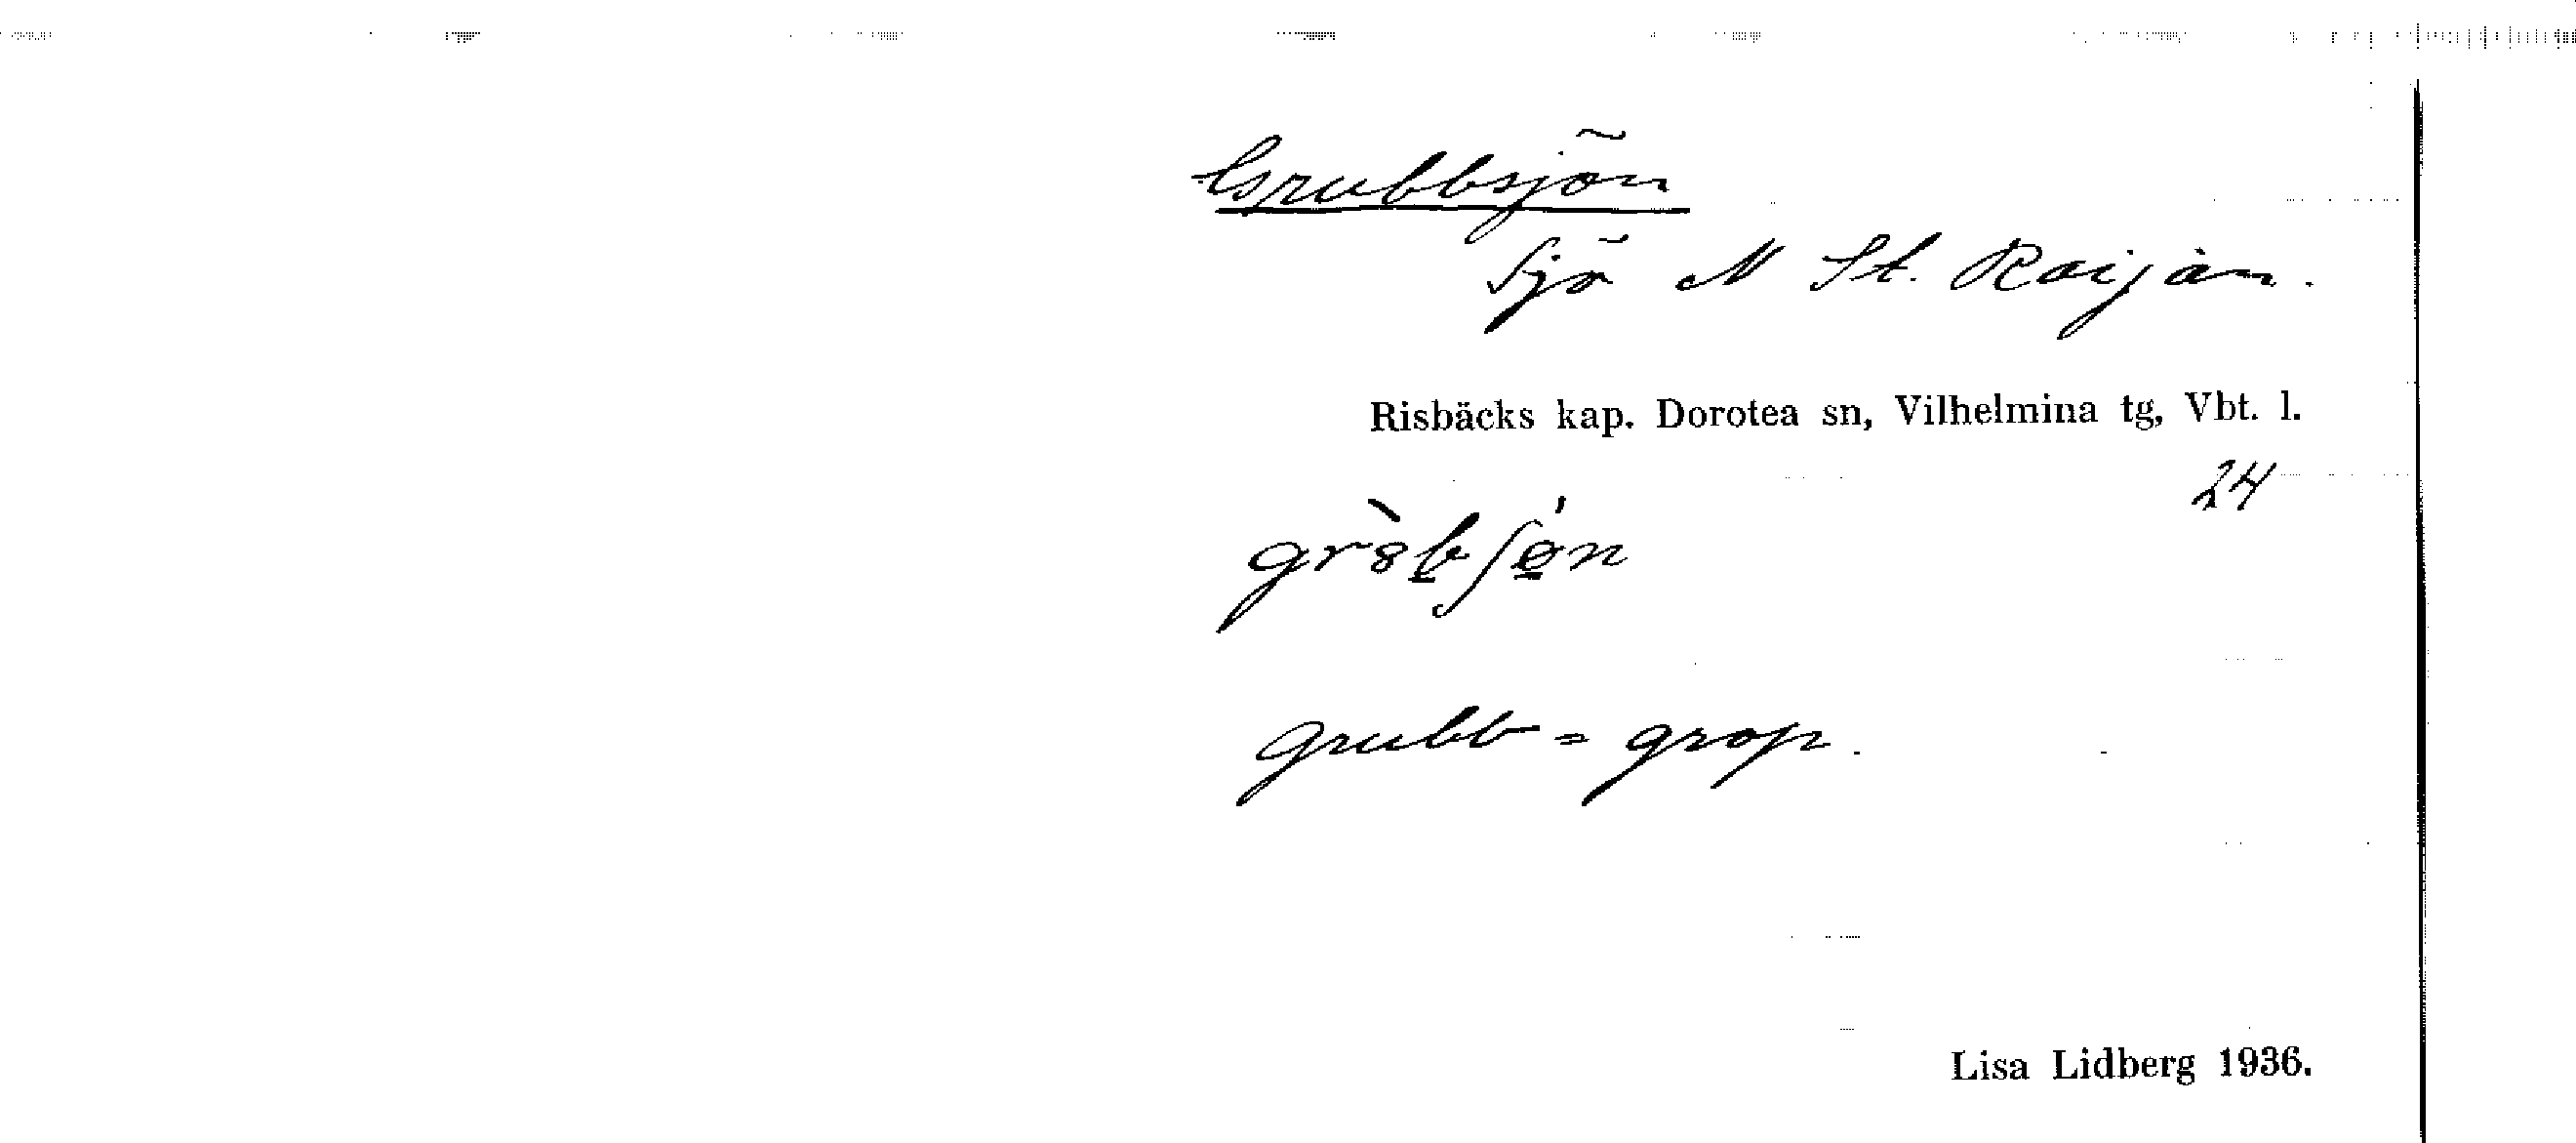 Grubbsjön
Sjö N St. Raijan.
Risbäcks kap. Dorotea sn, Vilhelmina tg, Vbt. l.
24
grubb = grop.
Lisa Lidberg 1936.